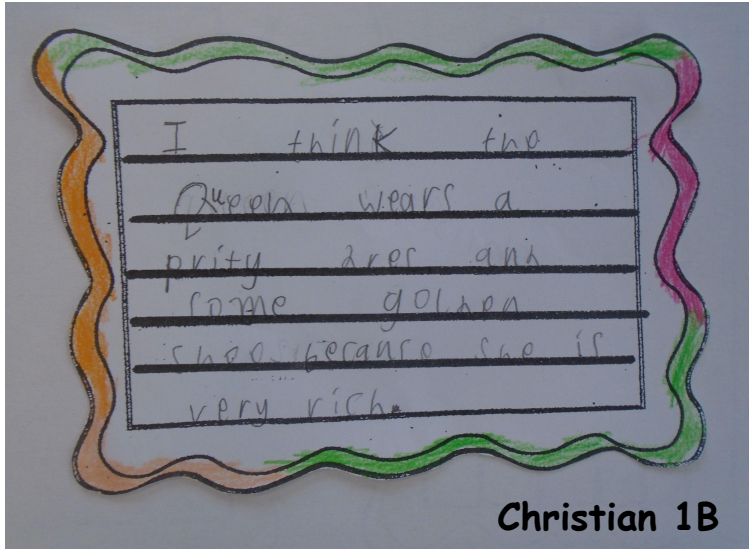 I think the
Queen wears a
prity dres and
some golden
shoes because she is
very rich.
Christian 1B